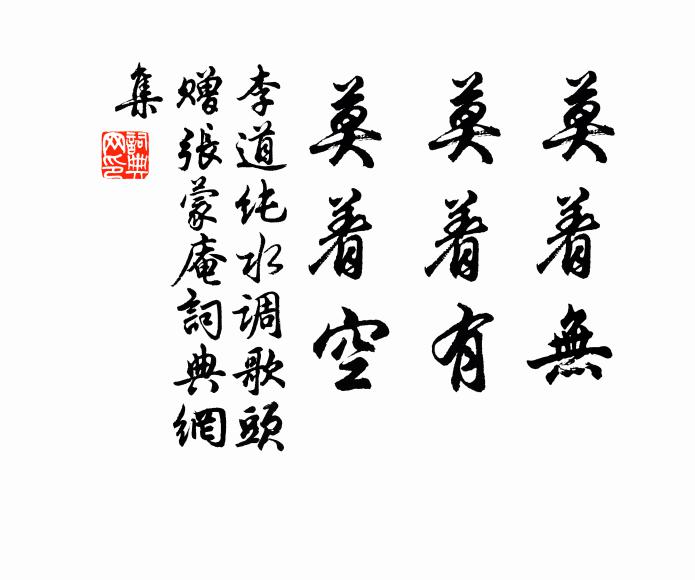 莫着無
莫着有
莫着空
李道纯水调歌頭
赠張蒙庵詞典網
集
詞典网印